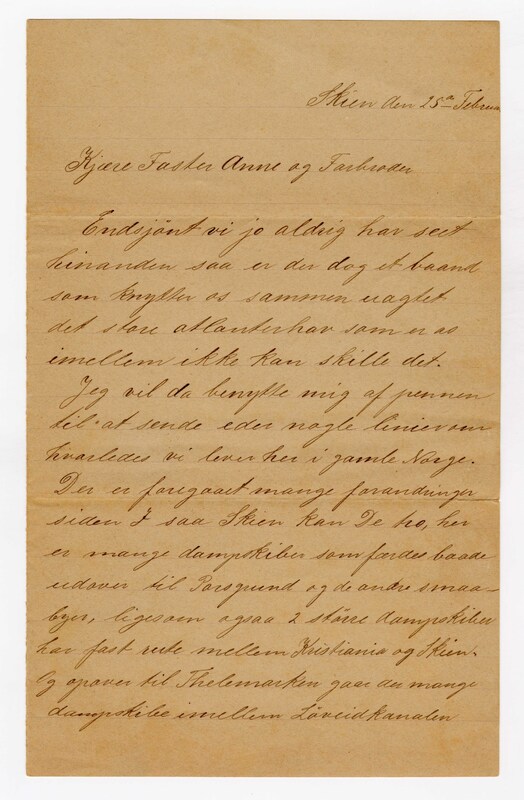 Skien den 25de Februa
Kjære Faster Anne og Farbroder
Endsjönt vi jo aldrig har seet
hinanden saa er der dog et baand
som knytter os sammen uagtet
det store atlanterhav som er os
imellem ikke kan skille det.
Jeg vil da benytte mig af pennen
til at sende eder nogle linier om
hvorledes vi lever her i gamle Norge.
Der er foregaaet mange forandringer
siden I saa Skien kan De tro, her
er mange dampskiber som færdes baade
udover til Porsgrund og de andre smaa-
byer, ligesom ogsaa 2 större dampskiber
har fast rute mellem Kristiania og Skien.
Og opover til Thelemarken gaar der mange
dampskibe imellem Löveidkanalen